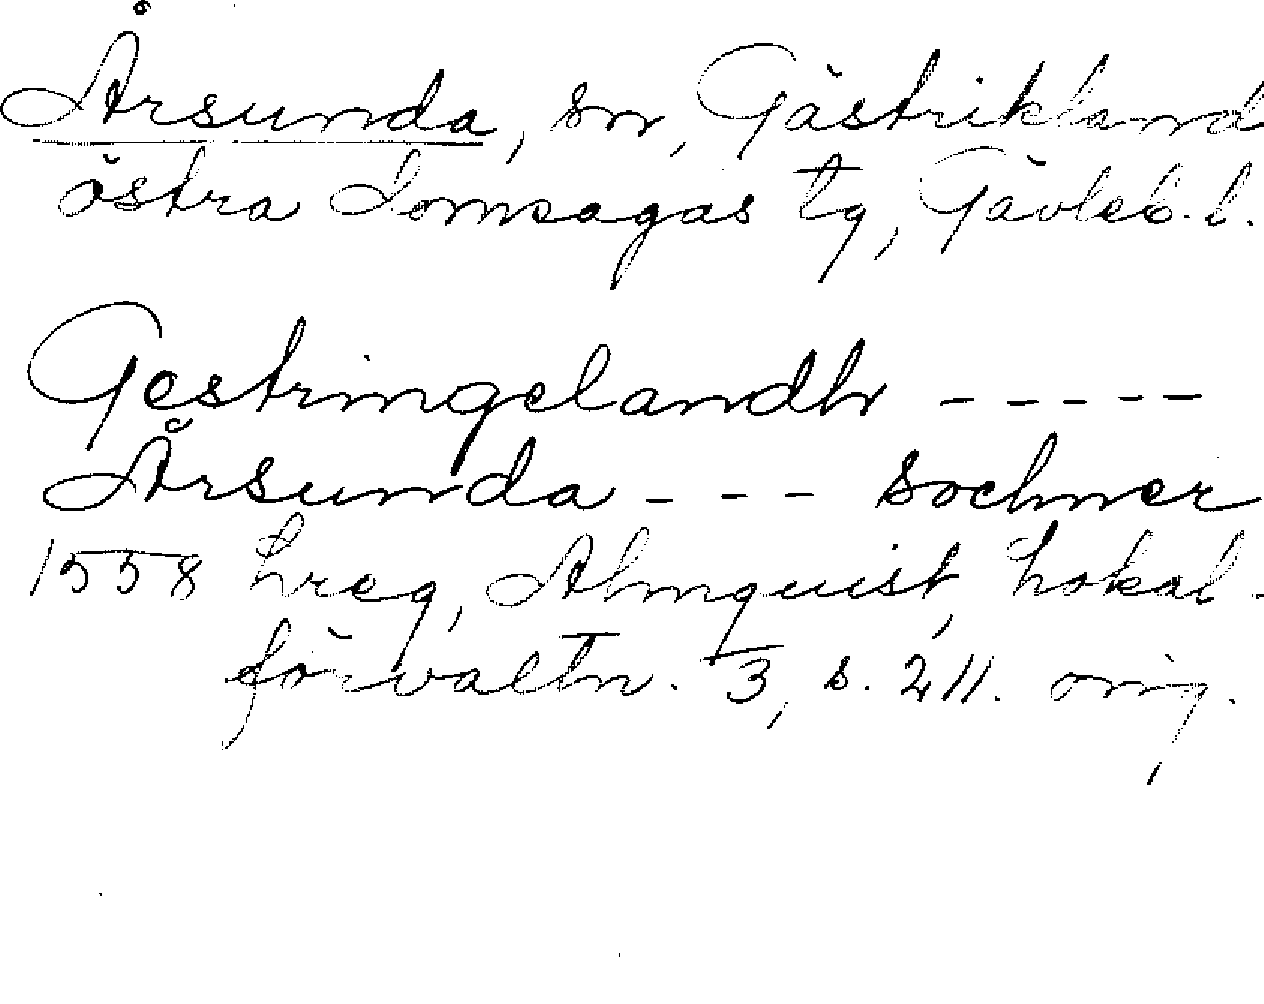 Årsunda, sn, Gästrikland
östra domsagas tg, Gävleb. l.
Gestringelandh -----
Årsunda --- sochner
1558 hreg, Almquist, Lokal-
förvaltn. 3, s. 211. orig.